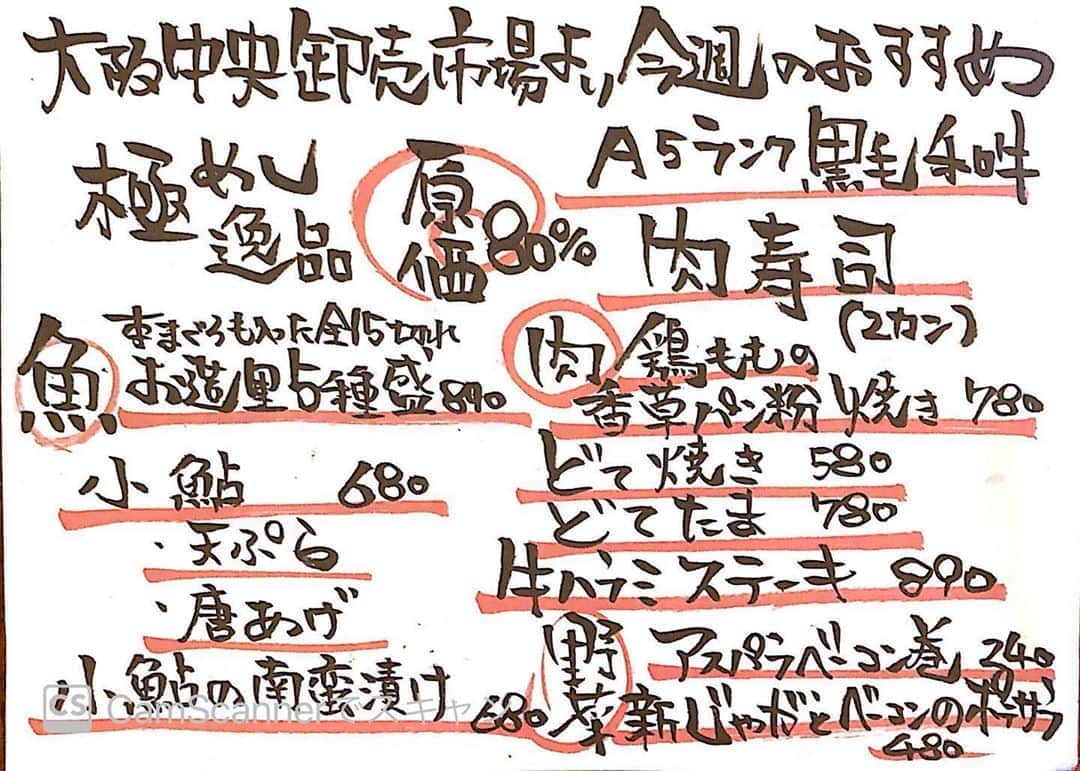 大阪中央卸売市場より今週のおすすめ
極めし
逸品
原価80%
A5ランク黒毛和牛
肉寿司
(2カン)
魚
本まぐろも入った全15切れ
お造里5種盛890
小鮎 680
・天ぷら
・唐あげ
小鮎の南蛮漬け 680
肉
鶏ももの
香草パン粉焼き 780
どて焼き 580
どてたま 780
牛ハラミステーキ 890
野菜
アスパラベーコン巻 340
新じゃがとベーコンのポテサラ
480
CS CamScannerでスキャン